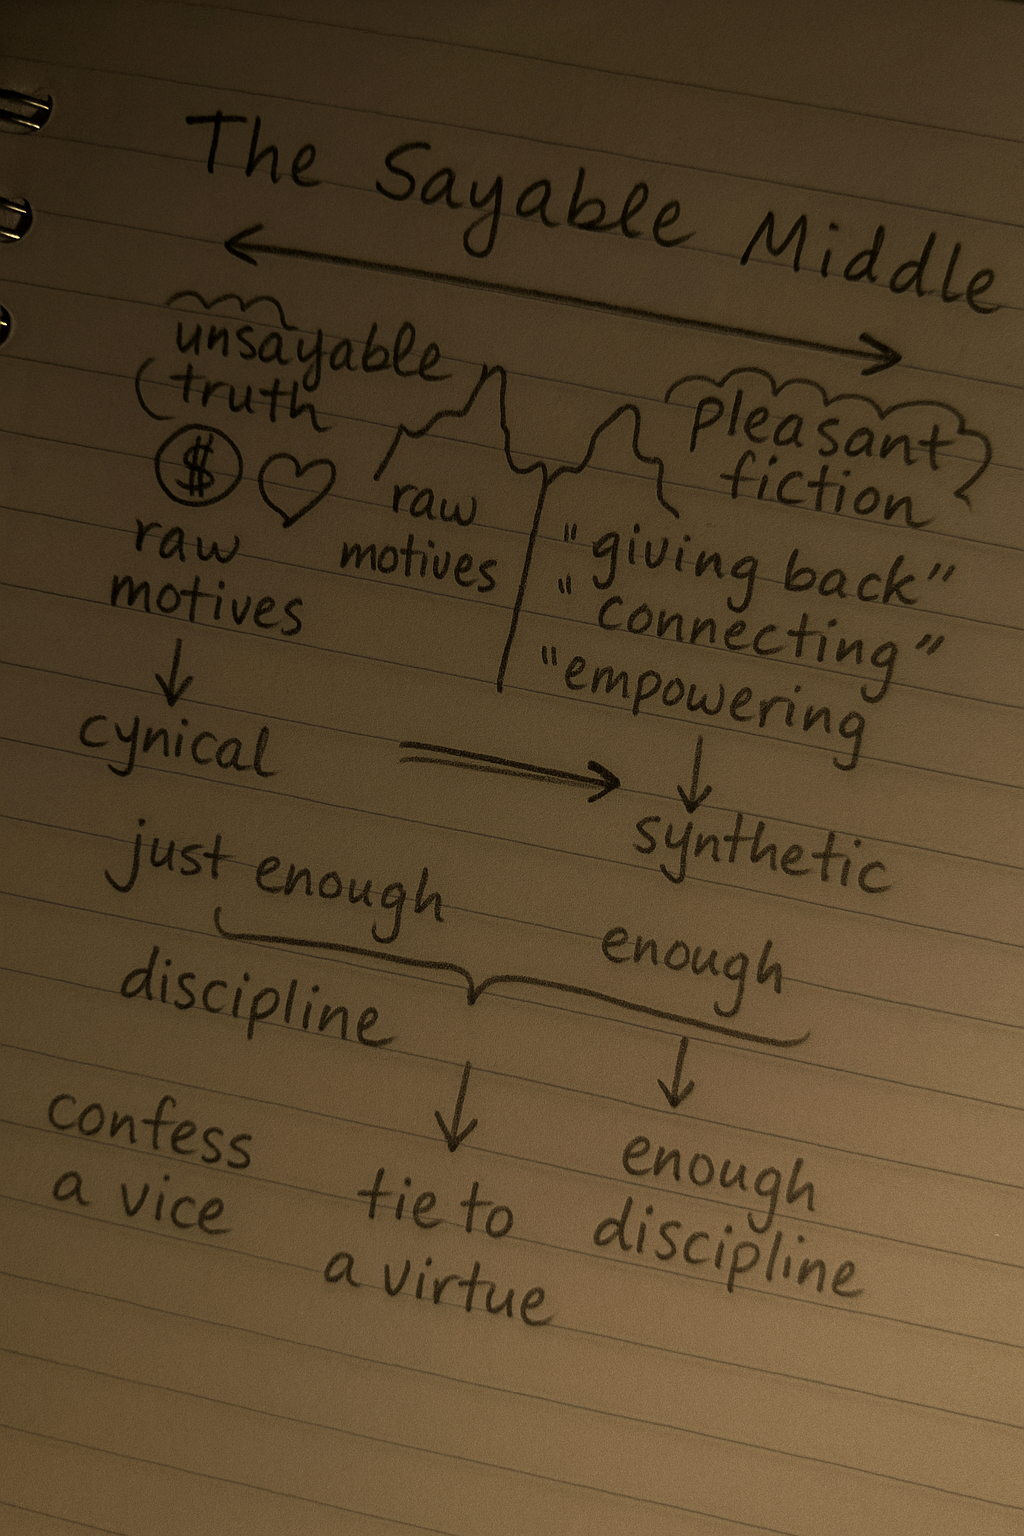 The Sayable Middle
unsayable
(truth
$
raw
motives
raw
motives
pleasant
fiction
"giving back"
"connecting"
"empowering
cynical
synthetic
just enough
enough
discipline
confess
a vice
tie to
a virtue
enough
discipline